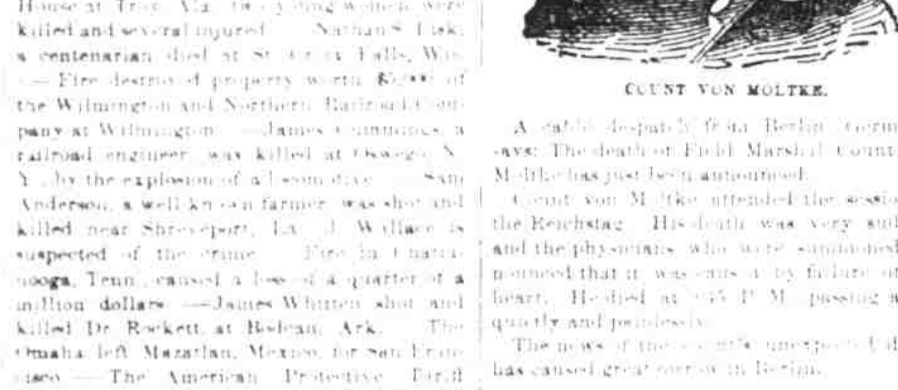 House at Troy, Ala., two young women were
killed and several injured. Nathan S. Lusk,
a centenarian died at St. Falls, Wis.
— Fire destroyed property worth of
the Wilmington and Northern Railroad Com-
pany at Wilmington. —James Cummings, a
railroad engineer, was killed at Oswego, N.
Y., by the explosion of a locomotive. Sam
Anderson, a well-known farmer, was shot and
killed near Shreveport, La. J. Wallace is
suspected of the crime. Fire in Chatta-
nooga, Tenn., caused a loss of a quarter of a
million dollars. —James Whitten shot and
killed Dr. Rockett, at Bodcau, Ark. The
Omaha left Mazatlan, Mexico, for San Fran-
cisco. — The American Protective Tariff
COUNT VON MOLTKE.
A cable despatch from Berlin,
says: The death of Field Marshal Count
Moltke has just been announced.
Count von Moltke attended the
the Reichstag. His death was very
and the physicians who were summoned
nounced that it was caused by failure of
heart. He died at P. M., passing
quietly and painlessly.
The news of the unexpected
has caused great sorrow in Berlin.